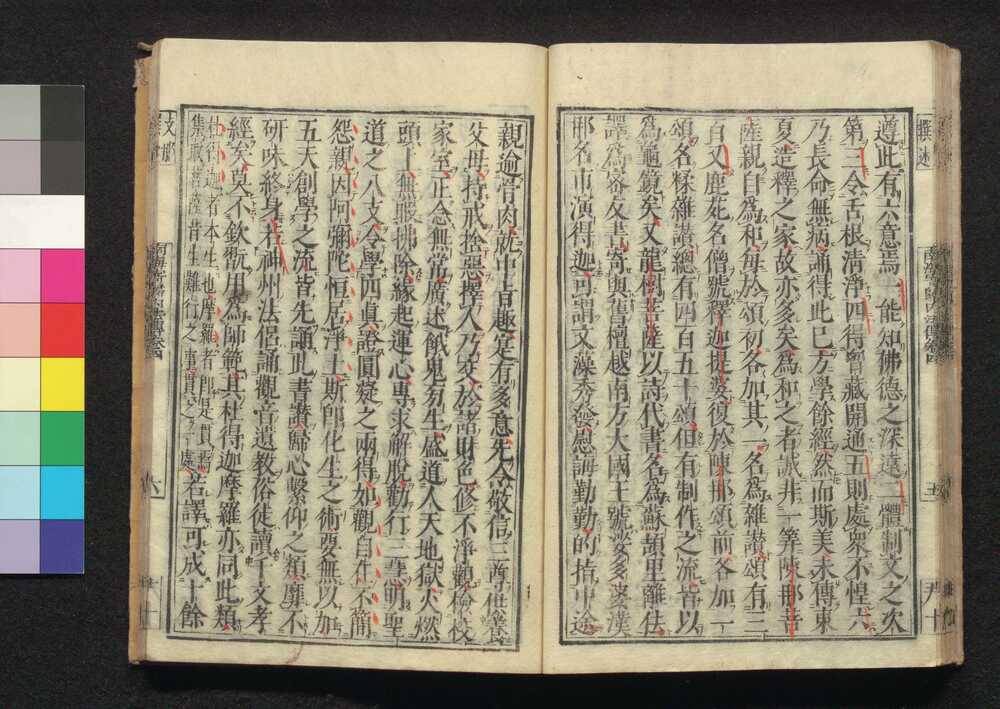 遵此有六意焉一能知佛德之深遠二體制文之次
第三令舌根清淨四得胷藏開通五則處衆不惶六
乃長命無病誦得此已方學餘經然而斯美未傳東
夏造釋之家故亦多矣爲和之者誠非一筭陳那菩
薩親自爲和每於頌初各加其一名爲雜讃頌有三
百又鹿苑名僧號釋迦提婆復於陳那頌前各加一
頌名糅雜讃總有四百五十頌但有制作之流皆以
爲龜鏡矣又龍樹菩薩以詩代書名爲蘇頡里離佉
譯爲密友書寄與舊檀越南方大國王號娑多婆漢
那名市演得迦可謂文藻秀發慰誨勤勤的指中途
親逾骨肉就中旨趣寔有多意先令敬信三尊孝養
父母持戒捨惡擇人乃交於諸財色修不淨觀檢校
家室正念無常廣述餓鬼旁生盛道人天地獄火燃
頭上無暇拂除緣起運心專求解脫勤行三慧明聖
道之八支令學四眞證圓凝之兩得如觀自在不簡
怨親因阿彌陀恒居淨土斯即化生之術要無以加
五天創學之流皆先誦此書讃歸心繫仰之類靡不
研味終身若神州法侶誦觀音遺教俗徒讀千文孝
經矣莫不欽翫用爲師範其杜得迦摩羅亦同此類
社得迦者本生也摩羅者即是貫焉
集取菩薩昔生難行之事貫之一處
若譯可成十餘